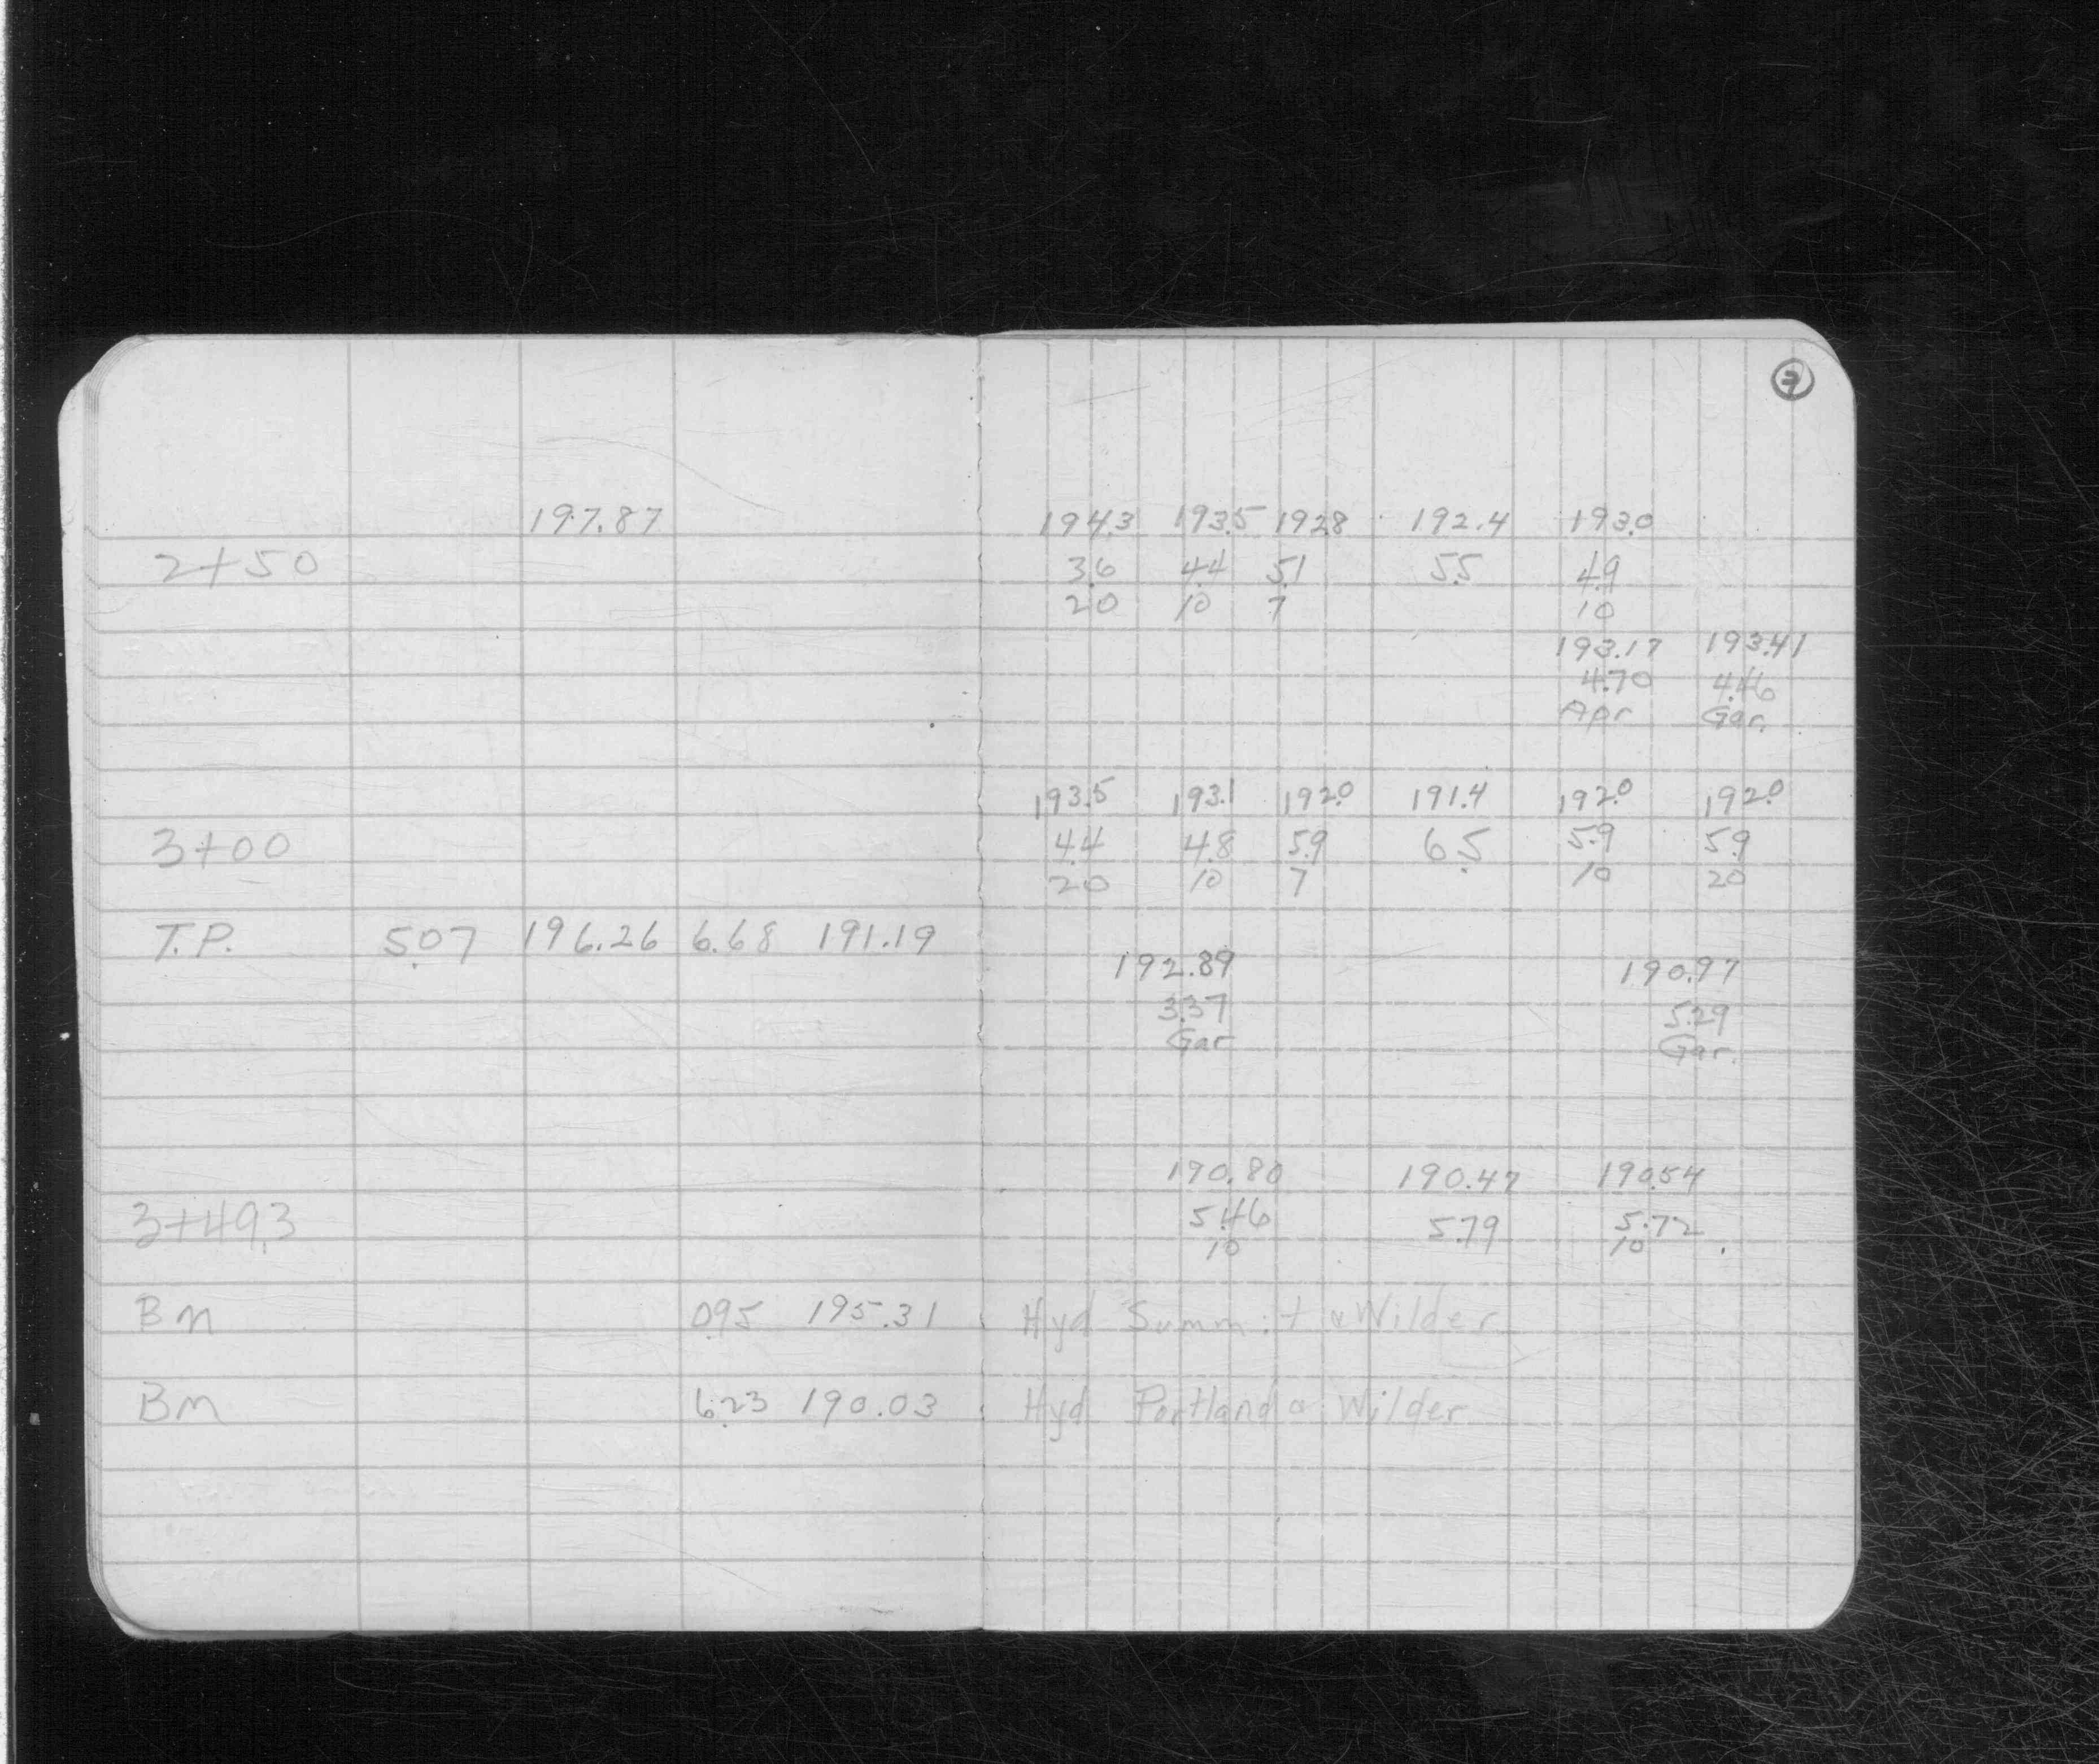 7
197.87 194.3 193.5 192.8 192.4 193.0
2+50 3.6 4.4 5.1 5.5 4.9
20 10 7 10
193.17 193.41
4.70 4.46
Apr Gar.
193.5 193.1 192.0 191.4 192.0 192.0
3+00 4.4 4.8 5.9 6.5 5.9 5.9
20 10 7 10 20
T.P. 5.07 196.26 6.68 191.19
192.89 190.97
3.37 5.29
Gar Gar.
190.80 190.47 190.54
3+49.3 5.46 5.79 5.72
10 10
BM 0.95 195.31 Hyd Summit & Wilder
BM 6.23 190.03 Hyd Portland & Wilder